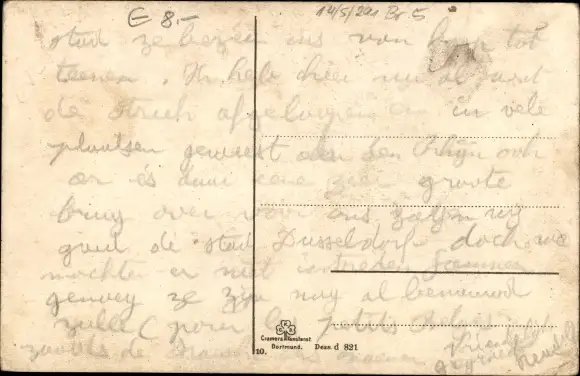 E 8.-
14/5/21 Br 5
stad ze bezien ons van kop tot
teenen. Ik heb hier nu al wat
de streek afgeloopen en in vele
plaatsen geweest aen den Rhijn ook
er is daar eene zeer groote
brug over voor ons zagen wij
goed de stad Dusseldorf doch we
mochten er niet in trekken jammer
genoeg ze zijn nog al benieuwd
zulle ( pour les petits Belges
zooals de
Cramers Kunstanst.
Dortmund. Dess. d 821
10.